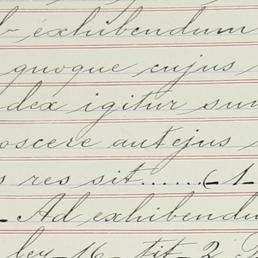 exhibendum
quoque cujus
dex igitur sum
oscere autejus
s res sit......(-1-
- Ad exhibendu
ley-16- tit-2